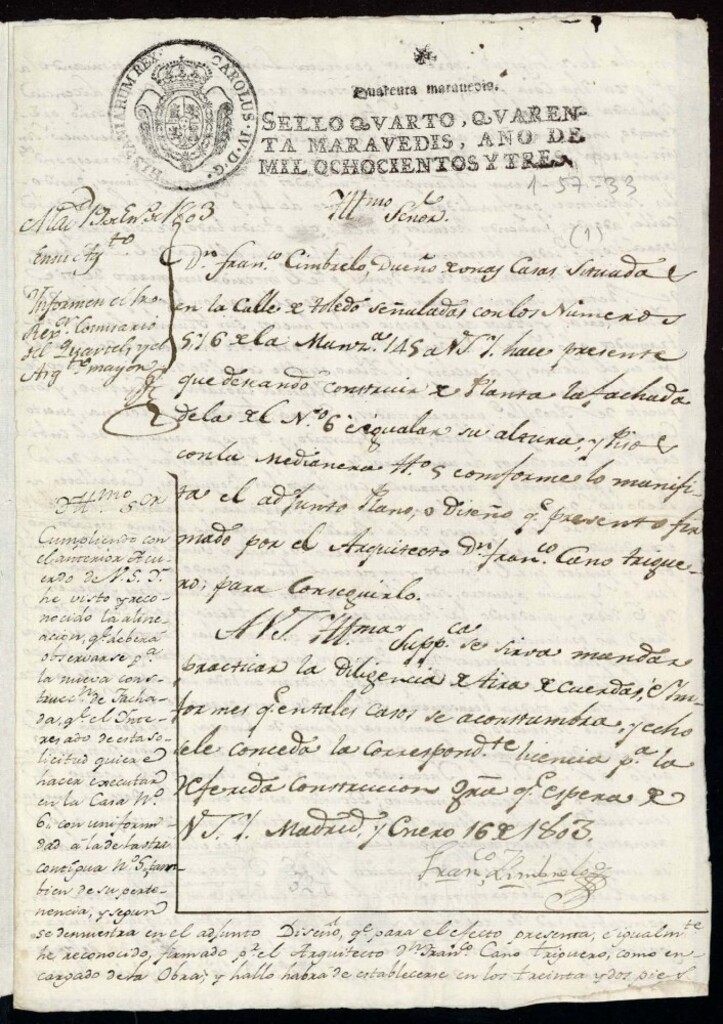 HISPANIARUM REX. CAROLUS IV D. G.
Quarenta maravedis.
SELLO QVARTO, QVAREN-
TA MARAVEDIS, AÑO DE
MIL OCHOCIENTOS Y TRES.
1-57-33
(1)
Illmo Señor.
Dn. Franco. Cimbrelo, Dueño de unas Casas situadas
en la Calle de Toledo señaladas con los Numeros
5 y 6 de la Manza. 145 a V.S.I. hace presente
que deseando construir de Planta la fachada
de la del No. 6 e igualar su altura, y Pisos
con la Medianera No. 5 comforme lo manifi-
ta el adjunto Plano, o Diseño qe. presento fir
mado por el Arquitecto Dn. Franco. Cano trigue-
ro; para conseguirlo.
A V.S. Illma. Suppca. se sirva mandar
practicar la diligencia de tira de cuerdas, e In-
formes qe. en tales casos se acostumbra, y echo
se le conceda la correspondte. licencia pa. la
referida construccion Gra. qe. espera de
V.S.I. Madrid, y Enero 16 de 1803.
Franco. Cimbrelo
Madd. 19 de Eno. de 1803
En su Aytto.
Informen el Sro.
Rexor. Comisario
del Quartel, y el
Arqto. mayor
Illmo. Sor.
Cumpliendo con
el anterior Acu-
erdo de V.S.I.
he visto y reco-
nocido la aline-
acion, qe. deberá
observarse pa.
la nueva cons-
truccn. de Facha-
da, qe. el Ynte-
resado de esta so-
licitud quiere
hacer executar
en la Casa No.
6, con uniformi-
dad à la de la otra
contigua No. 5, tam-
bien de su perte-
nencia, y segun
se demuestra en el adjunto Diseño, qe. para el efecto presenta, e igualmte.
he reconocido, firmado pr. el Arquitecto Dn. Franco. Cano Triguero, como en
cargado de la Obra; y hallo habra de establecerse en los treinta y dos pies